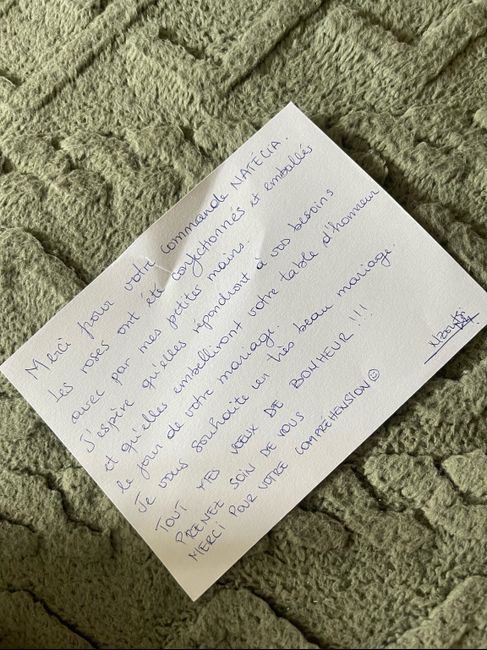 Merci pour votre commande NATÉCIA.
Les roses ont été confectionnés et emballés
avec par mes petites mains.
J'espère qu'elles répondront à vos besoins
et qu'elles embelliront votre table d'honneur
le jour de votre mariage.
Je vous souhaite un très beau mariage.
TOUT MES VŒUX DE BONHEUR !!!
PRENEZ SOIN DE VOUS
MERCI POUR VOTRE COMPRÉHENSION ☺